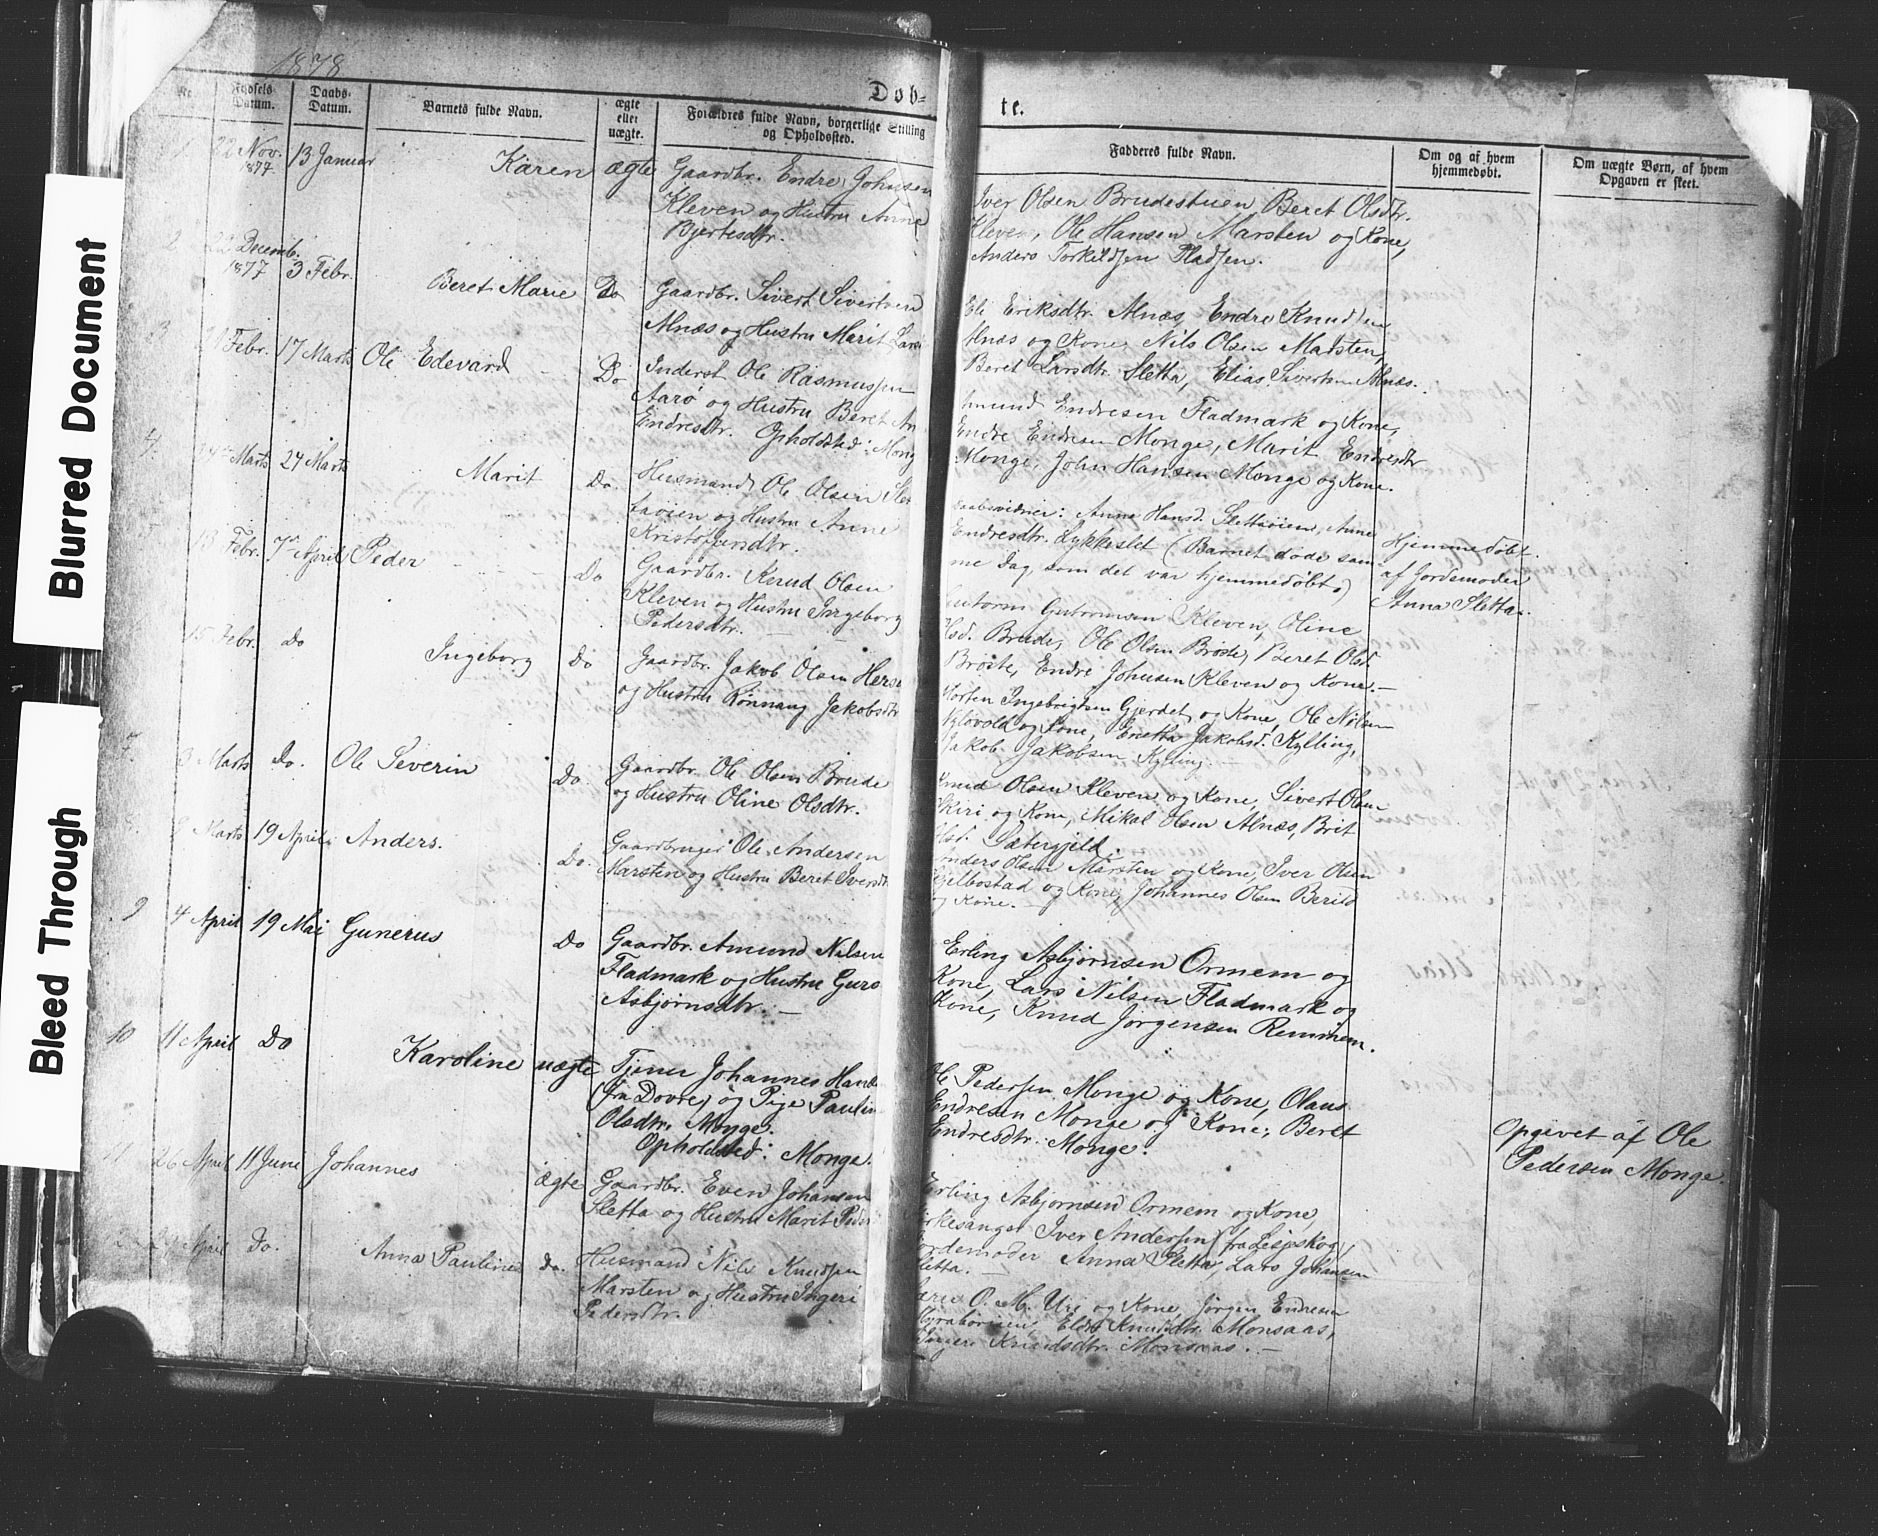 Blurred Document
Bleed Through
1878
Døb-
te.
Nr.
Fødsels Datum.
Daabs-Datum.
Barnets fulde Navn.
ægte eller uægte.
Forældres fulde Navn, borgerlige Stilling og Opholdssted.
Fadderes fulde Navn.
Om og af hvem hjemmedøbt.
Om uægte Børn, af hvem Opgaven er skeet.
1 22 Nov. 1877 13 Januar Karen ægte
Gaardbr. Endre Johnsen
Kleven og Hustru Anne
Bjertesdtr.
Iver Olsen Brudestuen Beret Olsdtr.
Kleven, Ole Hansen Marsten og Kone,
Anders Torkildsen Fladsen.
2 22 Decemb. 1877 3 Febr. Beret Marie Do
Gaardbr. Sivert Sivertsen
Alnæs og Hustru Marit Lars
Eli Eriksdtr. Alnæs Endre Knudsen
Alnæs og Kone, Nils Olsen Marsten,
Beret Larsdtr. Sletta, Elias Sivertsen Alnæs.
3 Febr. 17 Marts Ole Edevard Do
Inderst Ole Rasmussen
Aarø og Hustru Beret An
Endresdtr. Opholdsted: Mong
Amund Endresen Fladmark og Kone,
Endre Endresen Monge, Marit Endresdtr
Monge, John Hansen Monge og Kone.
4 Marts 24 Marts Marit Do.
Husmand Ole Olsen Slet
taøien og Hustru Anne
Kristofersdtr.
Daabsvidner: Anne Hansd. Slettaøien, Anne
Endresdtr. Lykkeslet (Barnet døde sam-
me Dag, som det var hjemmedøbt.)
Hjemmedøbt
af Jordemoder
Anna Sletta.
13 Febr. 7de April Peder Do
Gaardbr. Knud Olsen
Kleven og Hustru Ingeborg
Pedersdtr.
Gutorm Gutormsen Kleven, Oline
Olsd. Brude, Ole Olsen Brøste, Beret Olsd
Brøste, Endre Johnsen Kleven og Kone.
15 Febr. Do Ingeborg Do
Gaardbr. Jakob Olsen Herse
og Hustru Rønnaug Jakobsdtr
Morten Ingebrigtsen Gjerdet og Kone, Ole Nilsen
og Kone, Jakobsd. Kylling,
Jakob Jakobsen Kylling.
7 3 Marts Do. Ole Severin Do.
Gaardbr. Ole Olsen Brude
og Hustru Oline Olsdtr.
Knud Olsen Kleven og Kone, Sivert Olsen
Skiri og Kone, Mikal Olsen Alnæs, Brit
Olsd. Sætergjeld.
8 Marts 19 April Anders. Do.
Gaardbruger Ole Andersen
Marsten og Hustru Beret Iversdt
Anders Olsen Marsten og Kone, Iver Olsen
og Kone, Johannes Olsen
og Kone.
9 4 April 19 Mai Gunerus Do
Gaardbr. Amund Nilsen
Fladmark og Hustru Guro
Asbjørnsdtr.
Erling Asbjørnsen Ormem og
Kone, Lars Nilsen Fladmark og
Kone, Knud Jørgensen Remmem.
10 11 April Do Karoline uægte
Tjener Johannes Hans
(fra Dovre) og Pige Paulin
Olsdtr. Monge.
Opholdsted: Monge.
Ole Pedersen Monge og Kone, Olaus
Endresen Monge og Kone; Beret
Endresdtr. Monge.
Opgivet af Ole
Pedersen Monge.
11 26 April 11 June Johannes ægte
Gaardbr. Even Johansen
Sletta og Hustru Marit Peder
Erling Asbjørnsen Ormem og Kone,
Kirkesanger Iver Andersen (fra Lesjeskog),
Jordemoder Anna Sletta, Lars Johansen
Sletta.
April Do. Anna Pauline do.
Husmand Nils Knudsen
Marsten og Hustru Ingeri
Pedersdtr.
O. M. Uri og Kone, Jørgen Endresen
Knudsdtr. Monsaas,
Ingeri Knudsdtr. Monsaas.